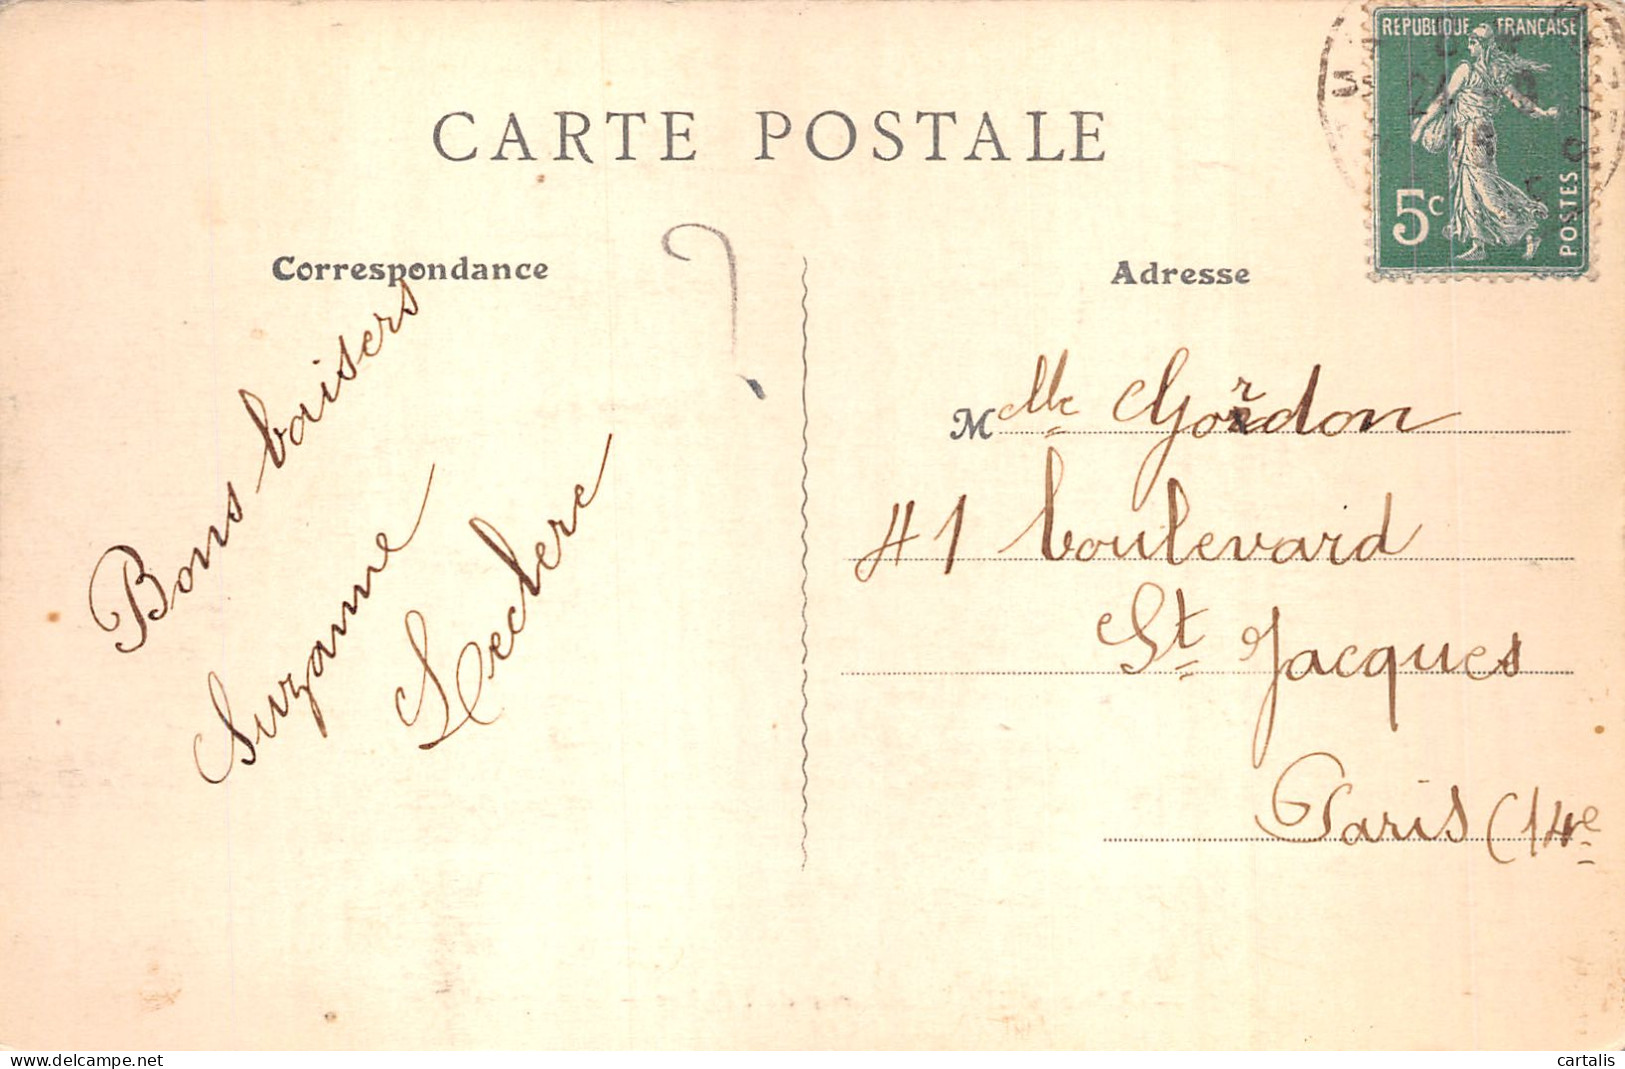 REPUBLIQUE FRANÇAISE
5c
POSTES
CARTE POSTALE
Correspondance
?
Bons baisers
Suzanne
Leclerc
Adresse
Melle Gordon
41 boulevard
St Jacques
Paris (14e
www.delcampe.net
cartalis